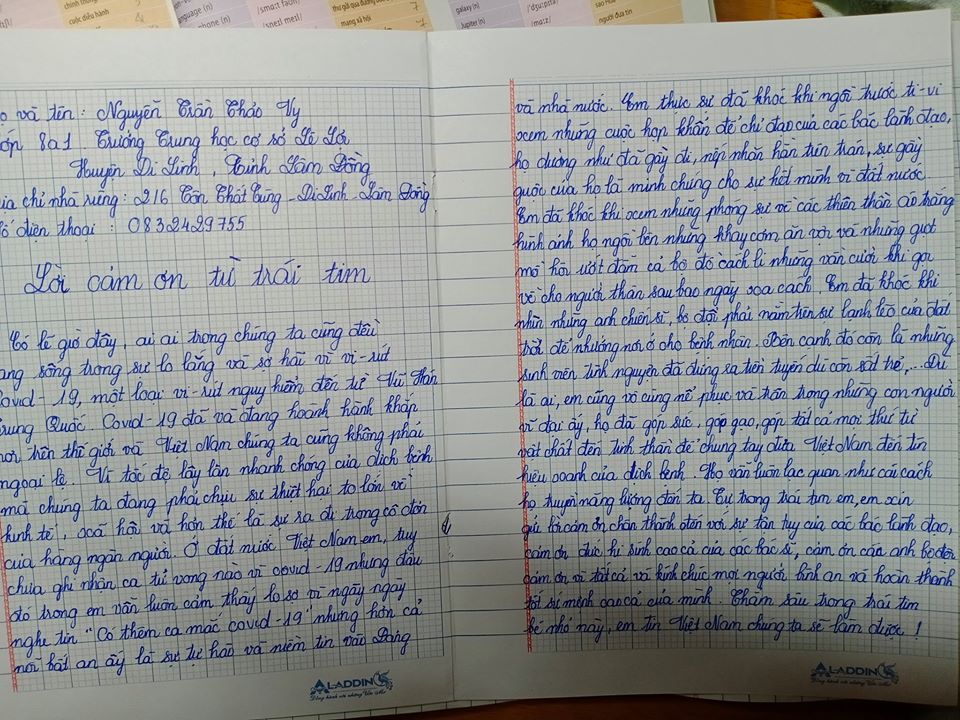 cuộc điều hành
language (n)
phone (n)
/smɑːt fəʊn/
/sneɪl meɪl/
thư gửi qua đường bưu
mạng xã hội
7
galaxy (n)
Jupiter (n)
/mɑːz/
sao Hoả
người đưa tin
ọ và tên: Nguyễn Trần Thảo Vy
ớp 8a1. Trường Trung học cơ sở Lê Lợi
Huyện Di Linh, tỉnh Lâm Đồng
ịa chỉ nhà riêng: 216 Tôn Thất Tùng - Di Linh - Lâm Đồng
ố điện thoại: 0832429755
Lời cảm ơn từ trái tim
Có lẽ giờ đây, ai ai trong chúng ta cũng đều
ang sống trong sự lo lắng và sợ hãi về vi-rút
Covid-19, một loại vi-rút nguy hiểm đến từ Vũ Hán
Trung Quốc. Covid-19 đã và đang hoành hành khắp
nơi trên thế giới và Việt Nam chúng ta cũng không phải
ngoại lệ. Vì tốc độ lây lan nhanh chóng của dịch bệnh
mà chúng ta đang phải chịu sự thiệt hại to lớn về
kinh tế, xã hội và hơn thế là sự ra đi trong cô đơn
của hàng ngàn người. Ở đất nước Việt Nam em, tuy
chưa ghi nhận ca tử vong nào vì covid-19 nhưng đâu
đó trong em vẫn luôn cảm thấy lo sợ vì ngày ngày
nghe tin "Có thêm ca mắc covid-19" nhưng hơn cả
nỗi bất an ấy là sự tự hào và niềm tin vào Đảng
ALADDIN
Đồng hành với những Ước Mơ
và nhà nước. Em thực sự đã khóc khi ngồi trước ti-vi
xem những cuộc họp khẩn để chỉ đạo của các bác lãnh đạo,
họ dường như đã gầy đi, nếp nhăn hằn trên trán, sự gầy
guộc của họ là minh chứng cho sự hết mình vì đất nước.
Em đã khóc khi xem những phóng sự về các thiên thần áo trắng
hình ảnh họ ngồi bên những khay cơm ăn vội và những giọt
mồ hôi ướt đẫm cả bộ đồ cách li nhưng vẫn cười khi gọi
về cho người thân sau bao ngày xa cách. Em đã khóc khi
nhìn những anh chiến sĩ, bộ đội phải nằm trên sự lạnh lẽo của đất
trời để nhường nơi ở cho bệnh nhân. Bên cạnh đó còn là những
sinh viên tình nguyện đã đứng ra tiền tuyến dù còn rất trẻ,... Dù
là ai, em cũng vô cùng nể phục và trân trọng những con người
vĩ đại ấy, họ đã góp sức, góp gạo, góp tất cả mọi thứ từ
vật chất đến tinh thần để chung tay đưa Việt Nam đến tín
hiệu xanh của dịch bệnh. Họ vẫn luôn lạc quan như cái cách
họ truyền năng lượng đến ta. Từ trong trái tim em, em xin
gửi lời cảm ơn chân thành đến với sự tận tụy của các bác lãnh đạo,
cảm ơn đức hi sinh cao cả của các bác sĩ, cảm ơn các anh bộ đội
cảm ơn vì tất cả và kính chúc mọi người bình an và hoàn thành
tốt sứ mệnh cao cả của mình. Thẳm sâu trong trái tim
bé nhỏ này, em tin Việt Nam chúng ta sẽ làm được!
ALADDIN
Đồng hành với những Ước Mơ